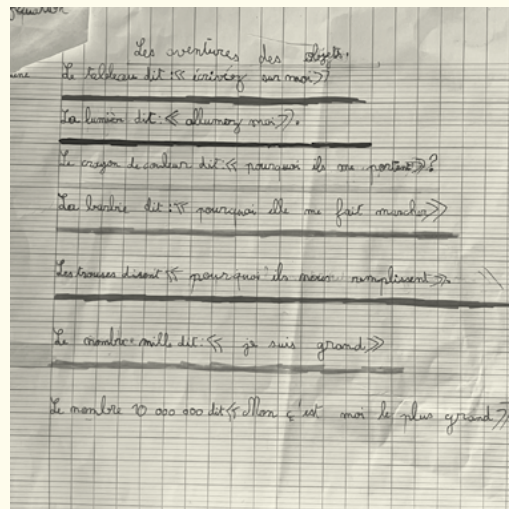 Les aventures des objets.
une
Le tableau dit : « écrivez sur moi »
La lumière dit : « allumez moi ».
Le crayon de couleur dit : « pourquoi ils me portent » ?
La barbie dit : « pourquoi elle me fait marcher »
Les trouses disent « pourquoi ils remplissent ».
Le nombre mille dit : « je suis grand, »
Le nombre 10 000 000 dit « Non c'est moi le plus grand »